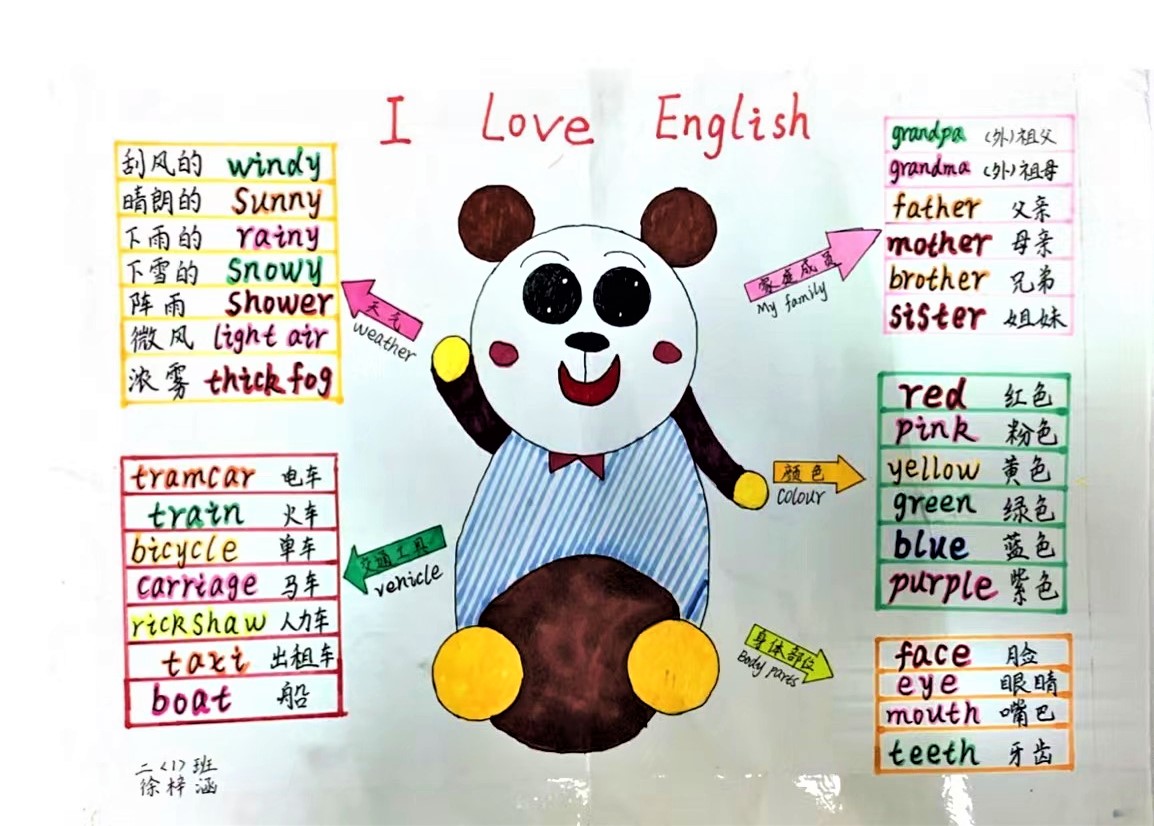 I Love English
刮风的 windy
晴朗的 Sunny
下雨的 rainy
下雪的 snowy
阵雨 shower
微风 light air
浓雾 thick fog
天气
weather
tramcar 电车
train 火车
bicycle 单车
carriage 马车
rickshaw 人力车
taxi 出租车
boat 船
交通工具
vehicle
grandpa (外)祖父
grandma (外)祖母
father 父亲
mother 母亲
brother 兄弟
sister 姐妹
家庭成员
My family
red 红色
pink 粉色
yellow 黄色
green 绿色
blue 蓝色
purple 紫色
颜色
colour
face 脸
eye 眼睛
mouth 嘴巴
teeth 牙齿
身体部位
Body parts
二(1)班
徐梓涵